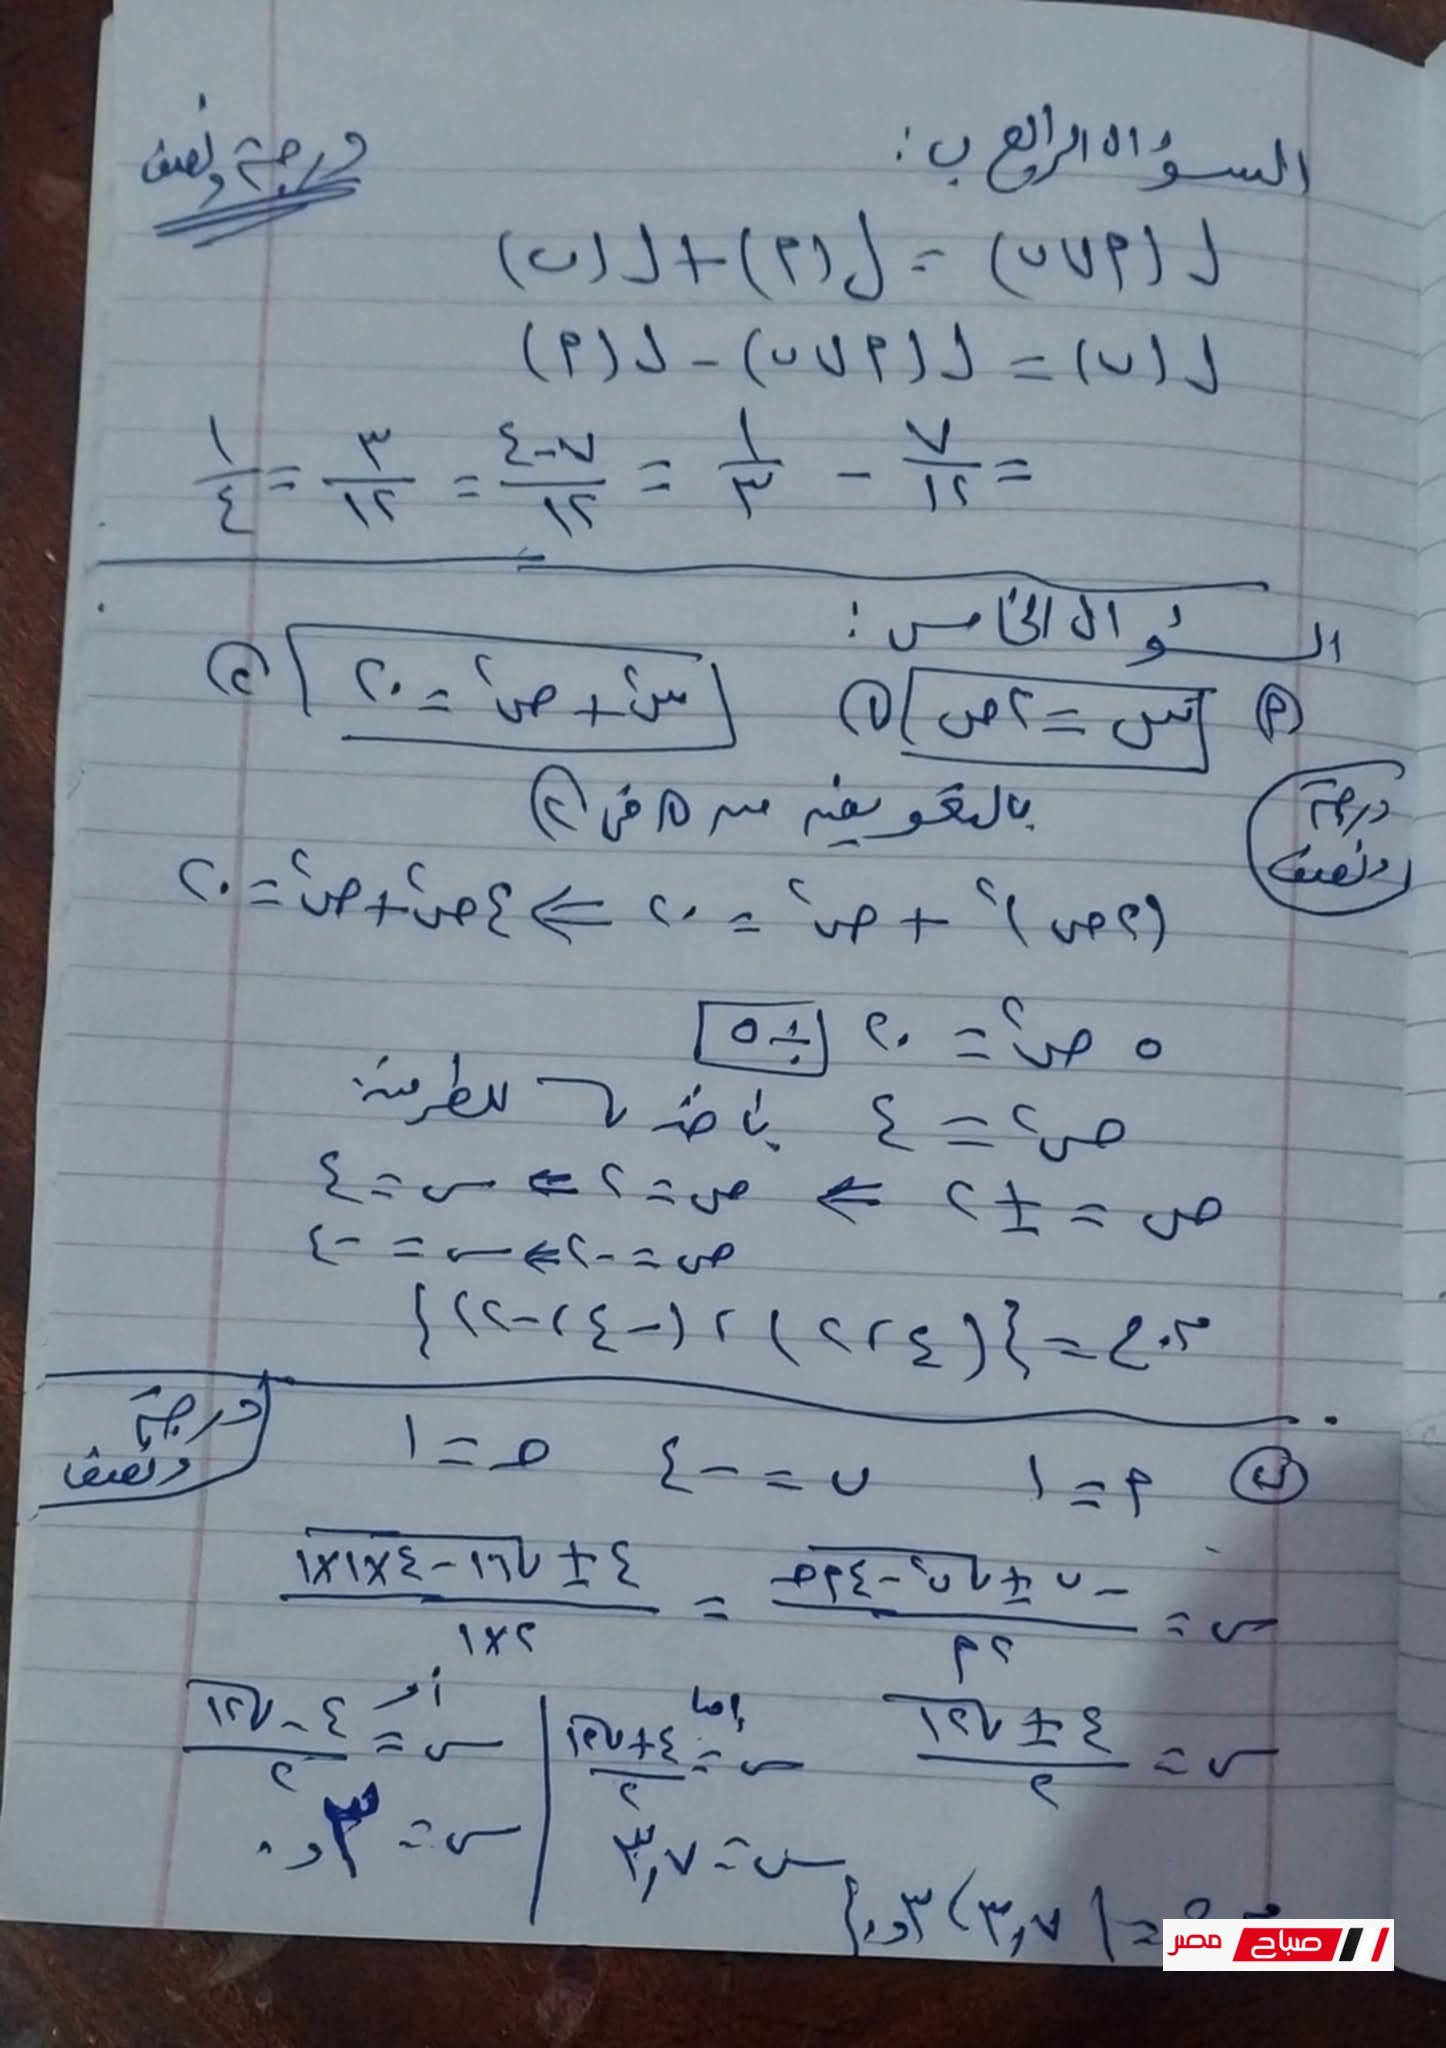 السؤال الرابع ب:
درجة ونصف
ل(أ∪ب) = ل(أ) + ل(ب)
ل(ب) = ل(أ∪ب) - ل(أ)
= ٧/١٢ - ١/٣ = ٧-٤/١٢ = ٣/١٢ = ١/٤
السؤال الخامس:
أ س = ٢ص ① س² + ص² = ٢٠ ②
درجة ونصف
بالتعويض من ① في ②
(٢ص)² + ص² = ٢٠ ⇐ ٤ص² + ص² = ٢٠
٥ص² = ٢٠ ÷٥
ص² = ٤ بأخذ √ للطرفين
ص = ±٢ ⇐ ص = ٢ ⇐ س = ٤
ص = -٢ ⇐ س = -٤
م.ح = {(٤، ٢)، (-٤، -٢)}
ب أ = ١ ب = -٤ حـ = ١
درجة ونصف
س = -ب ± √ب² - ٤أحـ / ٢أ = ٤ ± √١٦ - ٤×١×١ / ٢×١
س = ٤ ± √١٢ / ٢ إما س = ٤ + √١٢ / ٢ أو س = ٤ - √١٢ / ٢
س = ٣,٧ س = ٠,٣
م.ح = {٣,٧، ٠,٣}
صباح مصر